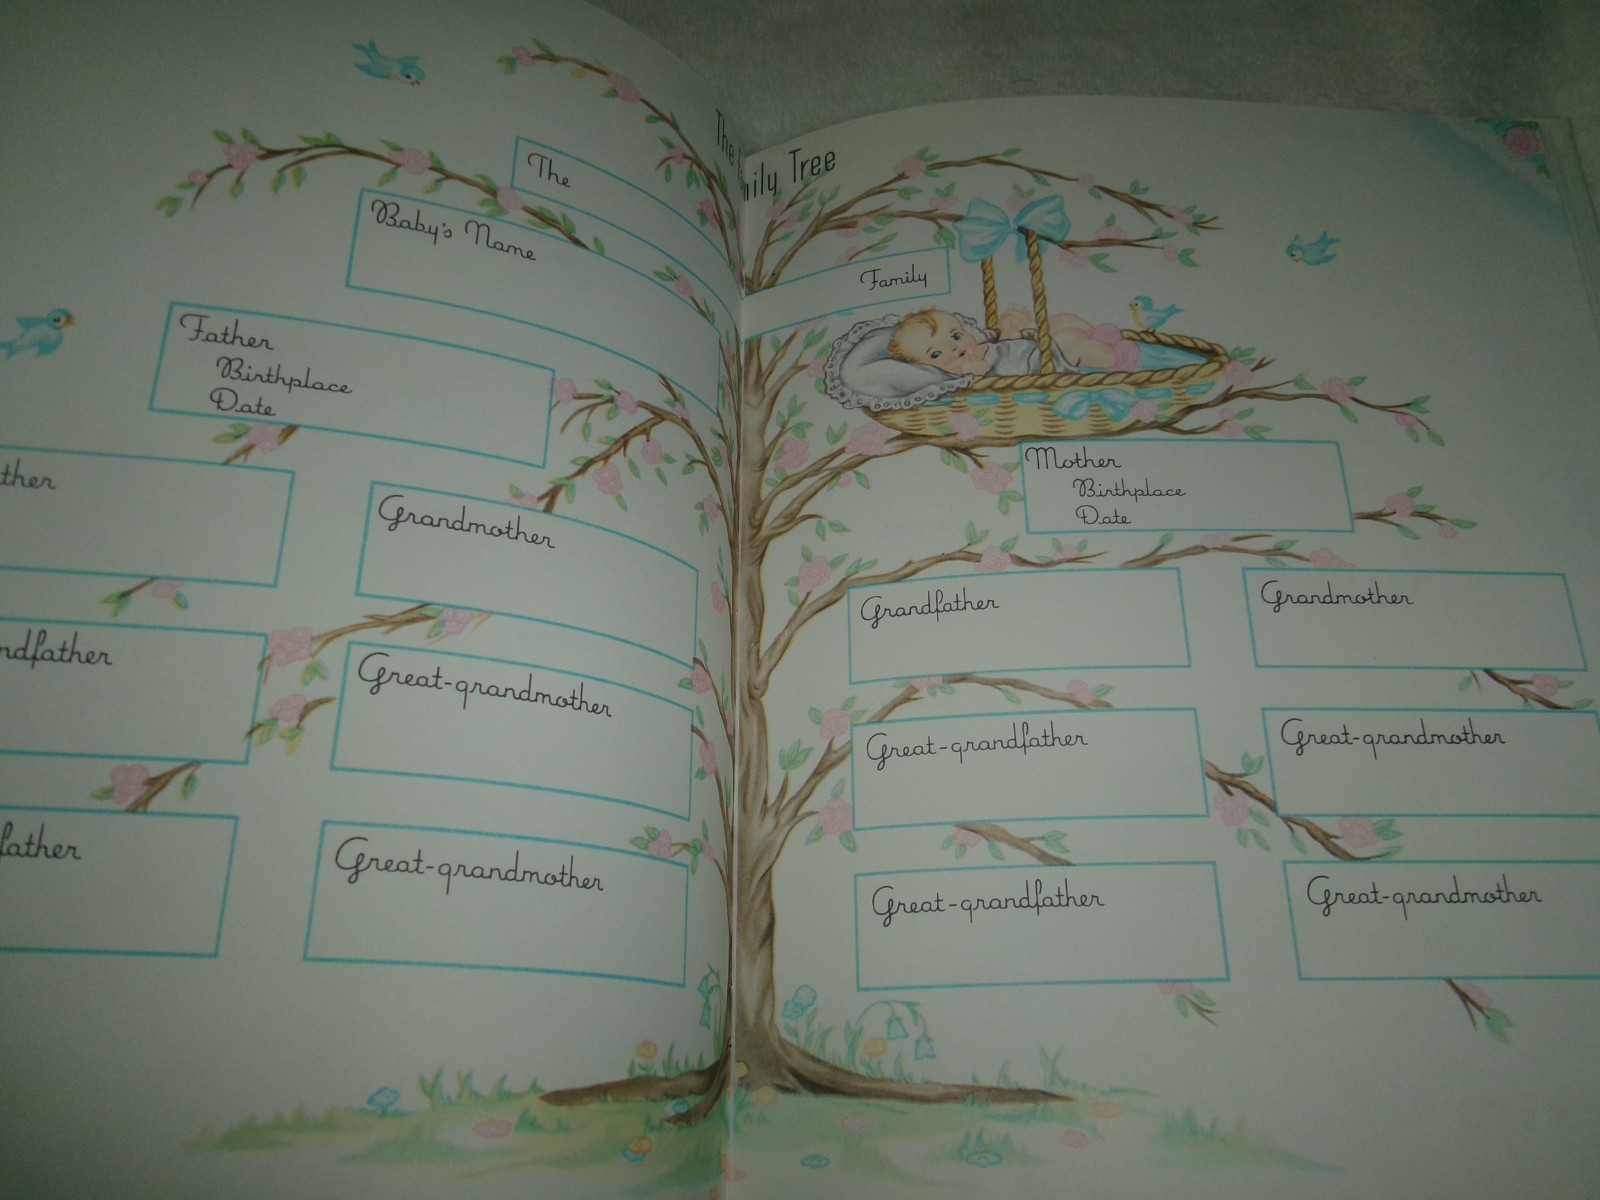 The Family Tree
The Family
Baby's Name
Father
Birthplace
Date
Mother
Birthplace
Date
ther
Grandmother
Grandfather
Grandmother
ndfather
Great-grandmother
Great-grandfather
Great-grandmother
father
Great-grandmother
Great-grandfather
Great-grandmother